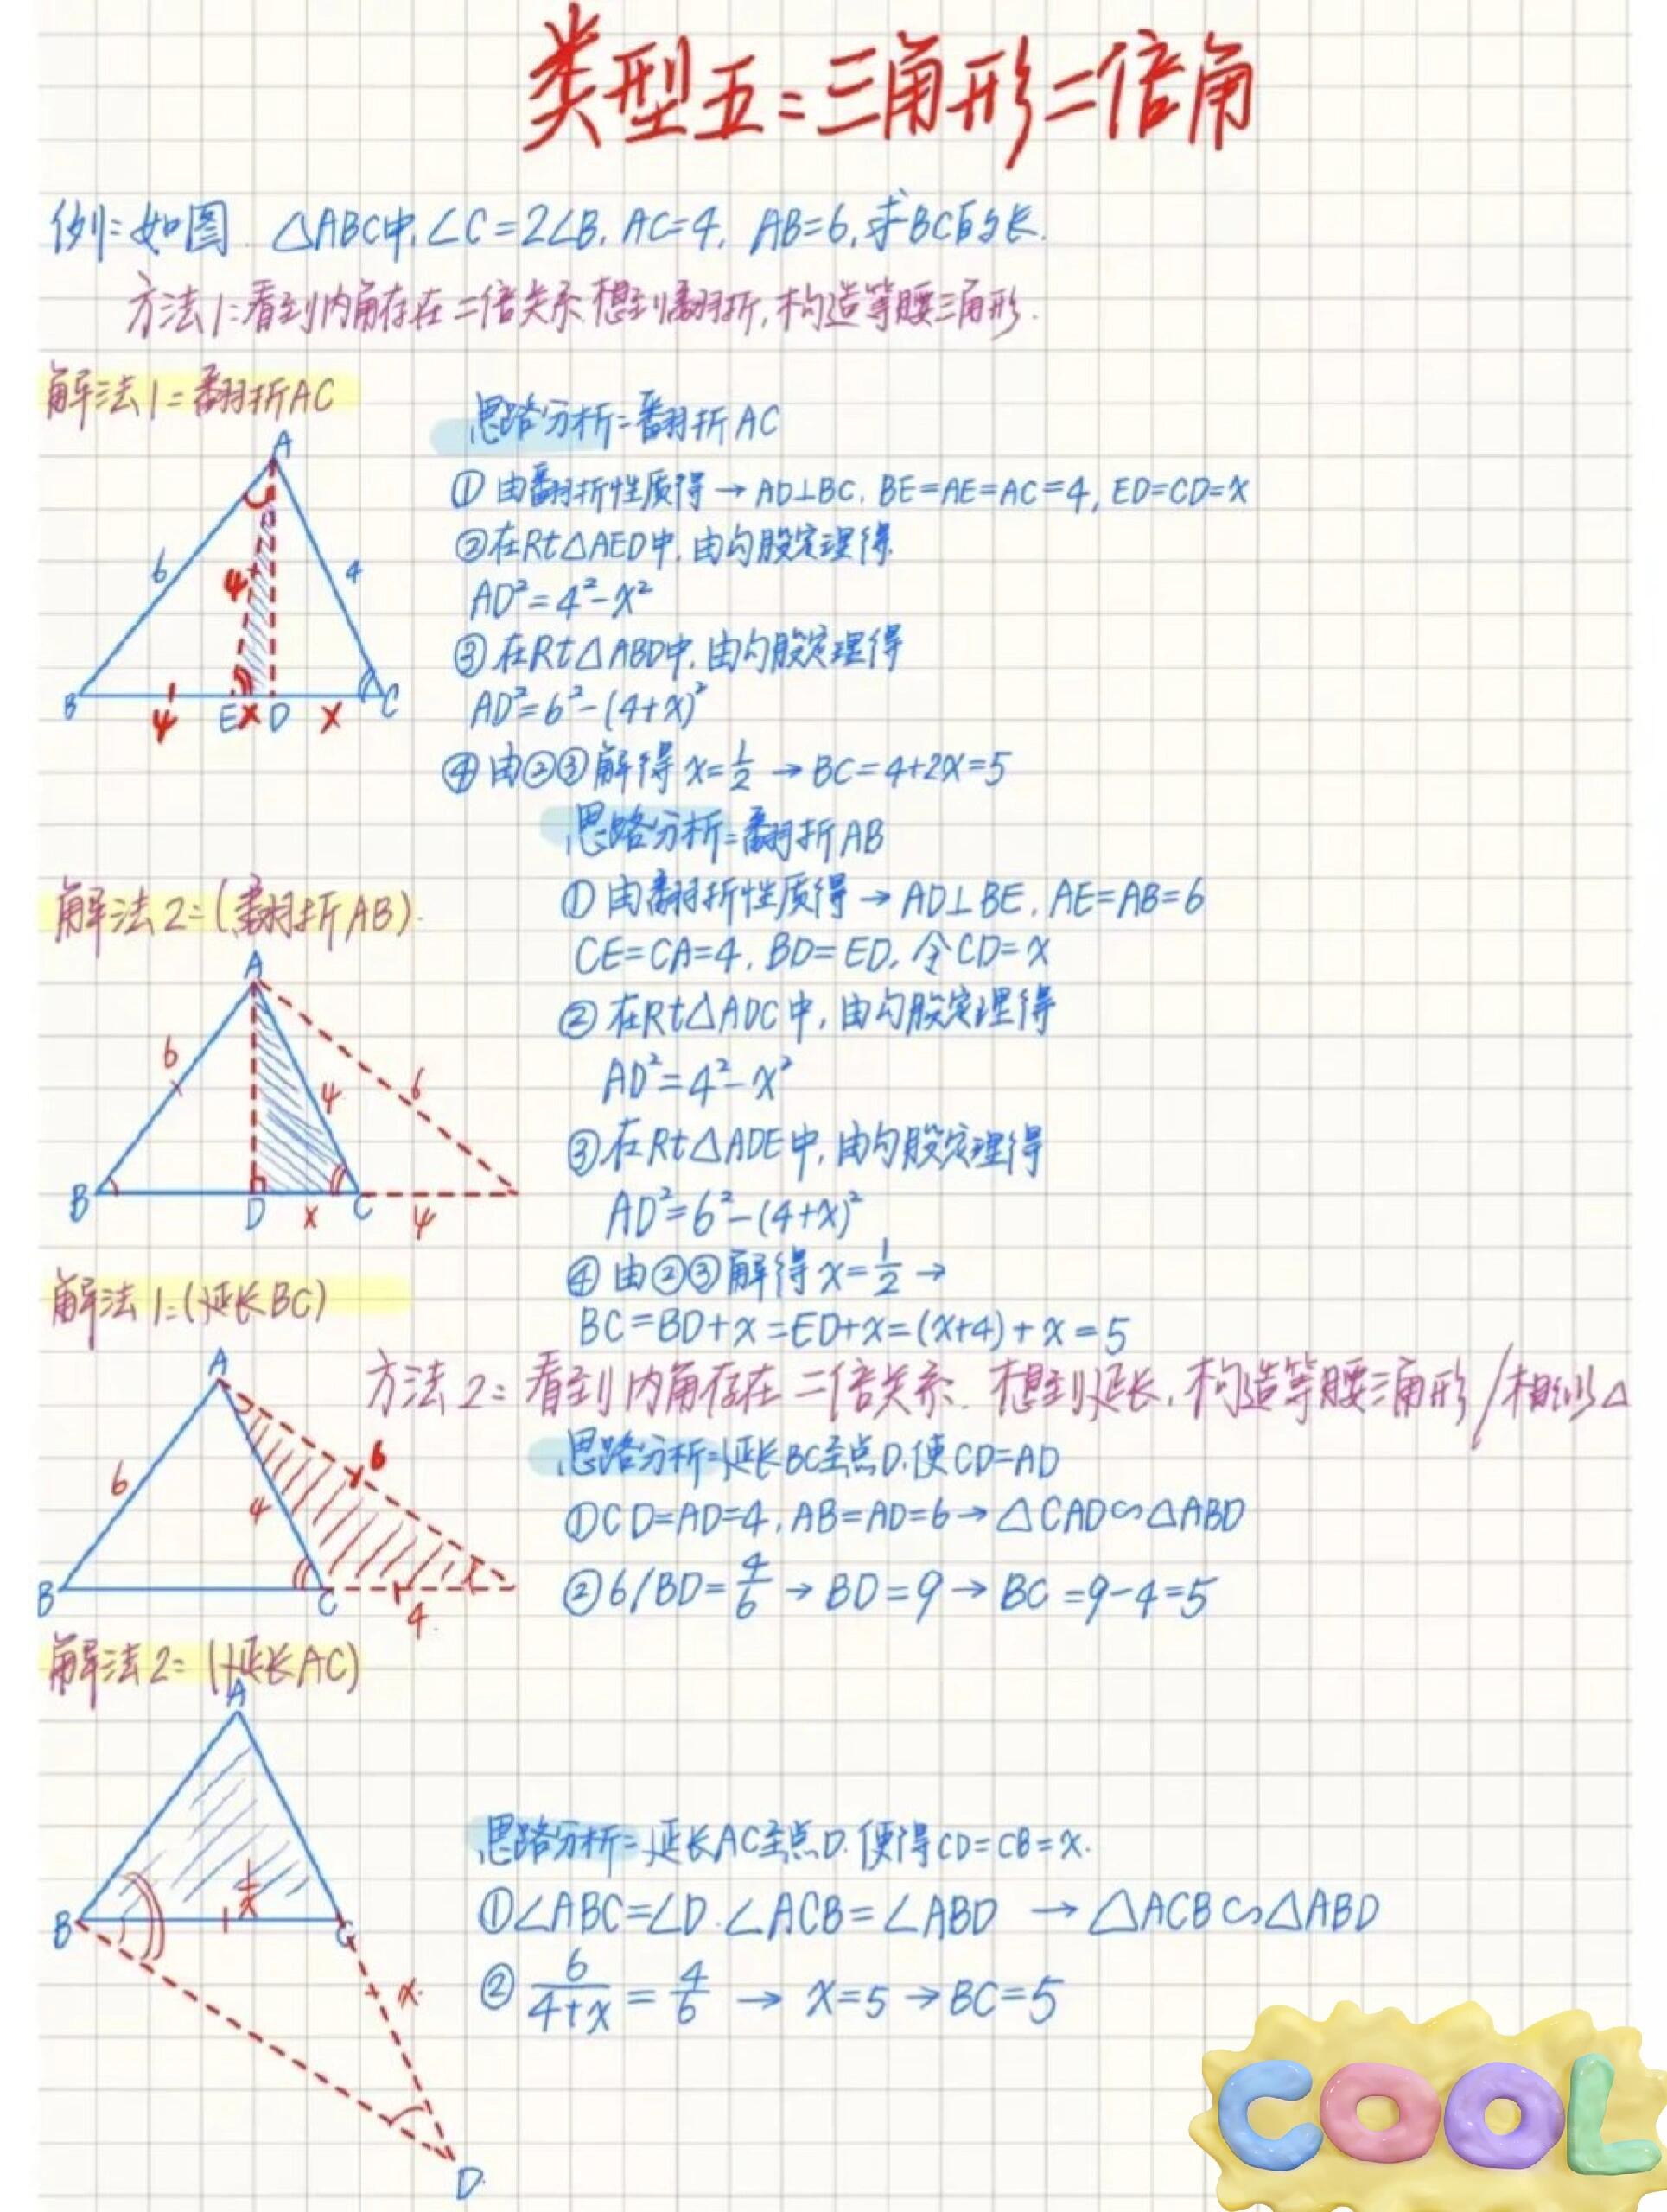 类型五:三角形二倍角
例:如图. △ABC中,∠C=2∠B, AC=4, AB=6,求BC的长.
方法1:看到内角存在二倍关系.想到翻折,构造等腰三角形.
解法1:翻折AC
思路分析:翻折AC
① 由翻折性质得→AD⊥BC, BE=AE=AC=4, ED=CD=x
②在Rt△AED中,由勾股定理得
AD²=4²-x²
③在Rt△ABD中,由勾股定理得
AD²=6²-(4+x)²
④由②③解得 x=1/2 →BC=4+2x=5
A
6
4
4
B
4
E
x
D
x
C
思路分析:翻折AB
解法2:(翻折AB).
① 由翻折性质得→AD⊥BE, AE=AB=6
CE=CA=4, BD=ED, 令CD=x
② 在Rt△ADC中,由勾股定理得
AD²=4²-x²
③在Rt△ADE中,由勾股定理得
AD²=6²-(4+x)²
④ 由②③解得x=1/2 →
BC=BD+x=ED+x=(x+4)+x=5
A
6
4
6
B
D
x
C
4
解法1:(延长BC)
方法2:看到内角存在二倍关系.想到延长,构造等腰三角形/相似△
思路分析:延长BC至点D,使CD=AD
①CD=AD=4, AB=AD=6→△CAD∽△ABD
②6/BD=4/6→BD=9→BC=9-4=5
A
6
6
4
B
C
4
解法2:(延长AC)
思路分析:延长AC至点D.使得CD=CB=x.
①∠ABC=∠D.∠ACB=∠ABD →△ACB∽△ABD
② 6/4+x=4/6 → x=5→BC=5
A
B
x
C
x
D
COOL